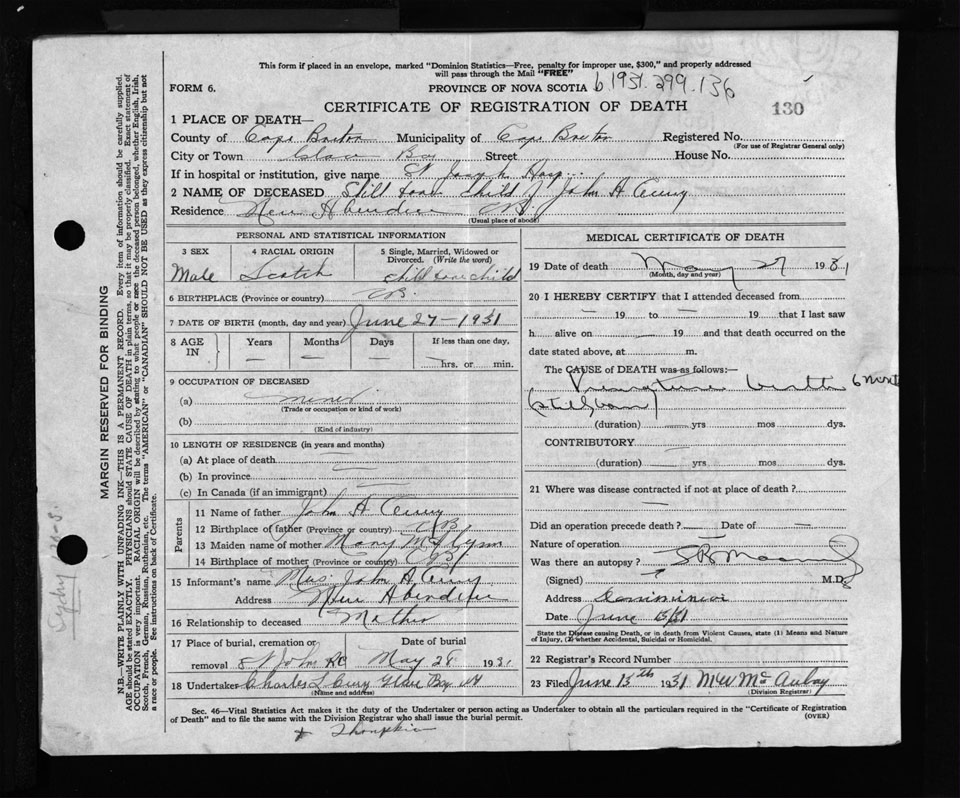 This form if placed in an envelope, marked "Dominion Statistics—Free, penalty for improper use, $300," and properly addressed
will pass through the Mail "FREE"
FORM 6.
PROVINCE OF NOVA SCOTIA 6 1931. 299. 136
CERTIFICATE OF REGISTRATION OF DEATH
130
1 PLACE OF DEATH—
County of Cape Breton Municipality of Cape Breton Registered No.
(For use of Registrar General only)
City or Town Glace Bay Street House No.
If in hospital or institution, give name St Joseph Hosp.
2 NAME OF DECEASED Still born child of John A
Residence New Aberdeen CB.
(Usual place of abode)
PERSONAL AND STATISTICAL INFORMATION
3 SEX
Male
4 RACIAL ORIGIN
Scotch
5 Single, Married, Widowed or
Divorced. (Write the word)
child
6 BIRTHPLACE (Province or country) CB.
7 DATE OF BIRTH (month, day and year) June 27 - 1931
8 AGE IN
Years
—
Months
—
Days
—
If less than one day,
hrs. or min.
9 OCCUPATION OF DECEASED
(a)
(Trade or occupation or kind of work)
(b)
(Kind of industry)
10 LENGTH OF RESIDENCE (in years and months)
(a) At place of death —
(b) In province —
(c) In Canada (if an immigrant)
Parents
11 Name of father John A
12 Birthplace of father (Province or country) CB
13 Maiden name of mother Mary
14 Birthplace of mother (Province or country) CB
15 Informant's name Mrs. John A
Address New Aberdeen
16 Relationship to deceased Mother
17 Place of burial, cremation or
removal St John RC
Date of burial
May 28 1931
18 Undertaker Charles L Curry Glace Bay NS
(Name and address)
MEDICAL CERTIFICATE OF DEATH
19 Date of death May 27 1931
(Month, day and year)
20 I HEREBY CERTIFY that I attended deceased from
— 19 to — 19 that I last saw
h alive on 19 and that death occurred on
date stated above, at m.
The CAUSE of DEATH was as follows:—
Premature birth 6 mont
(stillborn)
(duration) yrs mos dys.
CONTRIBUTORY —
(duration) — yrs mos dys.
21 Where was disease contracted if not at place of death?
—
Did an operation precede death? Date of —
Nature of operation
Was there an autopsy?
(Signed) M.D.
Address Dominion
Date June 31
State the Disease causing Death, or in death from Violent Causes, state (1) Means and Nature
of Injury, (2) whether Accidental, Suicidal or Homicidal.
22 Registrar's Record Number
23 Filed June 15th 1931 M W McAulay
(Division Registrar)
Sec. 46—Vital Statistics Act makes it the duty of the Undertaker or person acting as Undertaker to obtain all the particulars required in the "Certificate of Registration
of Death" and to file the same with the Division Registrar who shall issue the burial permit.
(OVER)
MARGIN RESERVED FOR BINDING
N.B.—WRITE PLAINLY WITH UNFADING INK—THIS IS A PERMANENT RECORD. Every item of information should be carefully supplied.
AGE should be stated EXACTLY. PHYSICIANS should STATE CAUSE OF DEATH in plain terms, so that it may be properly classified. Exact statement of
OCCUPATION is very important. RACIAL ORIGIN will be described by stating to what people or race the deceased person belonged, whether English, Irish,
Scotch, French, German, Russian, Ruthenian, etc. The terms "AMERICAN" or "CANADIAN" SHOULD NOT BE USED as they express citizenship but not
a race or people. See instructions on back of Certificate.